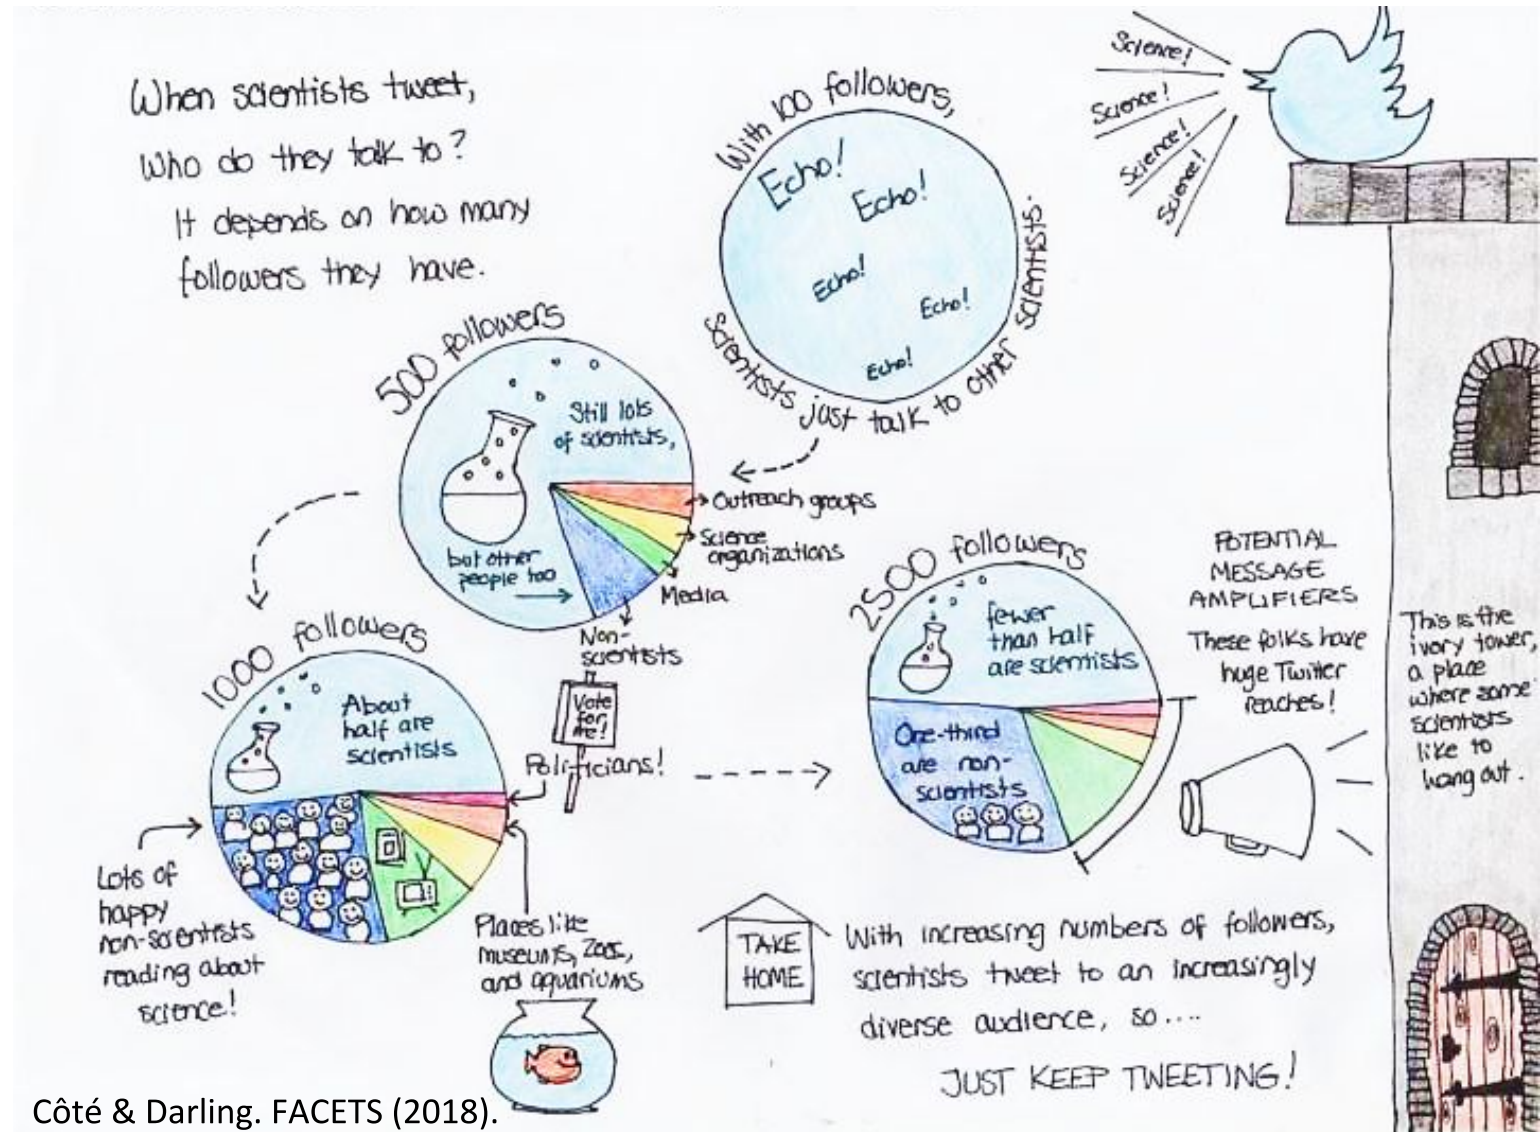 When scientists tweet,
Who do they talk to?
It depends on how many
followers they have.
With 100 followers,
Scientists just talk to other scientists.
Echo!
Echo!
Echo!
Echo!
Echo!
Science!
Science!
Science!
Science!
500 followers
Still lots
of scientists,
but other
people too
Outreach groups
Science
organizations
Media
Non-
scientists
1000 followers
About
half are
scientists
Vote
for
me!
Politicians!
Lots of
happy
non-scientists
reading about
science!
Places like
museums, zoos,
and aquariums
2500 followers
fewer
than half
are scientists
One-third
are non-
scientists
POTENTIAL
MESSAGE
AMPLIFIERS
These folks have
huge Twitter
reaches!
This is the
ivory tower,
a place
where some
scientists
like to
hang out.
TAKE
HOME
With increasing numbers of followers,
scientists tweet to an increasingly
diverse audience, so....
JUST KEEP TWEETING!
Côté & Darling. FACETS (2018).